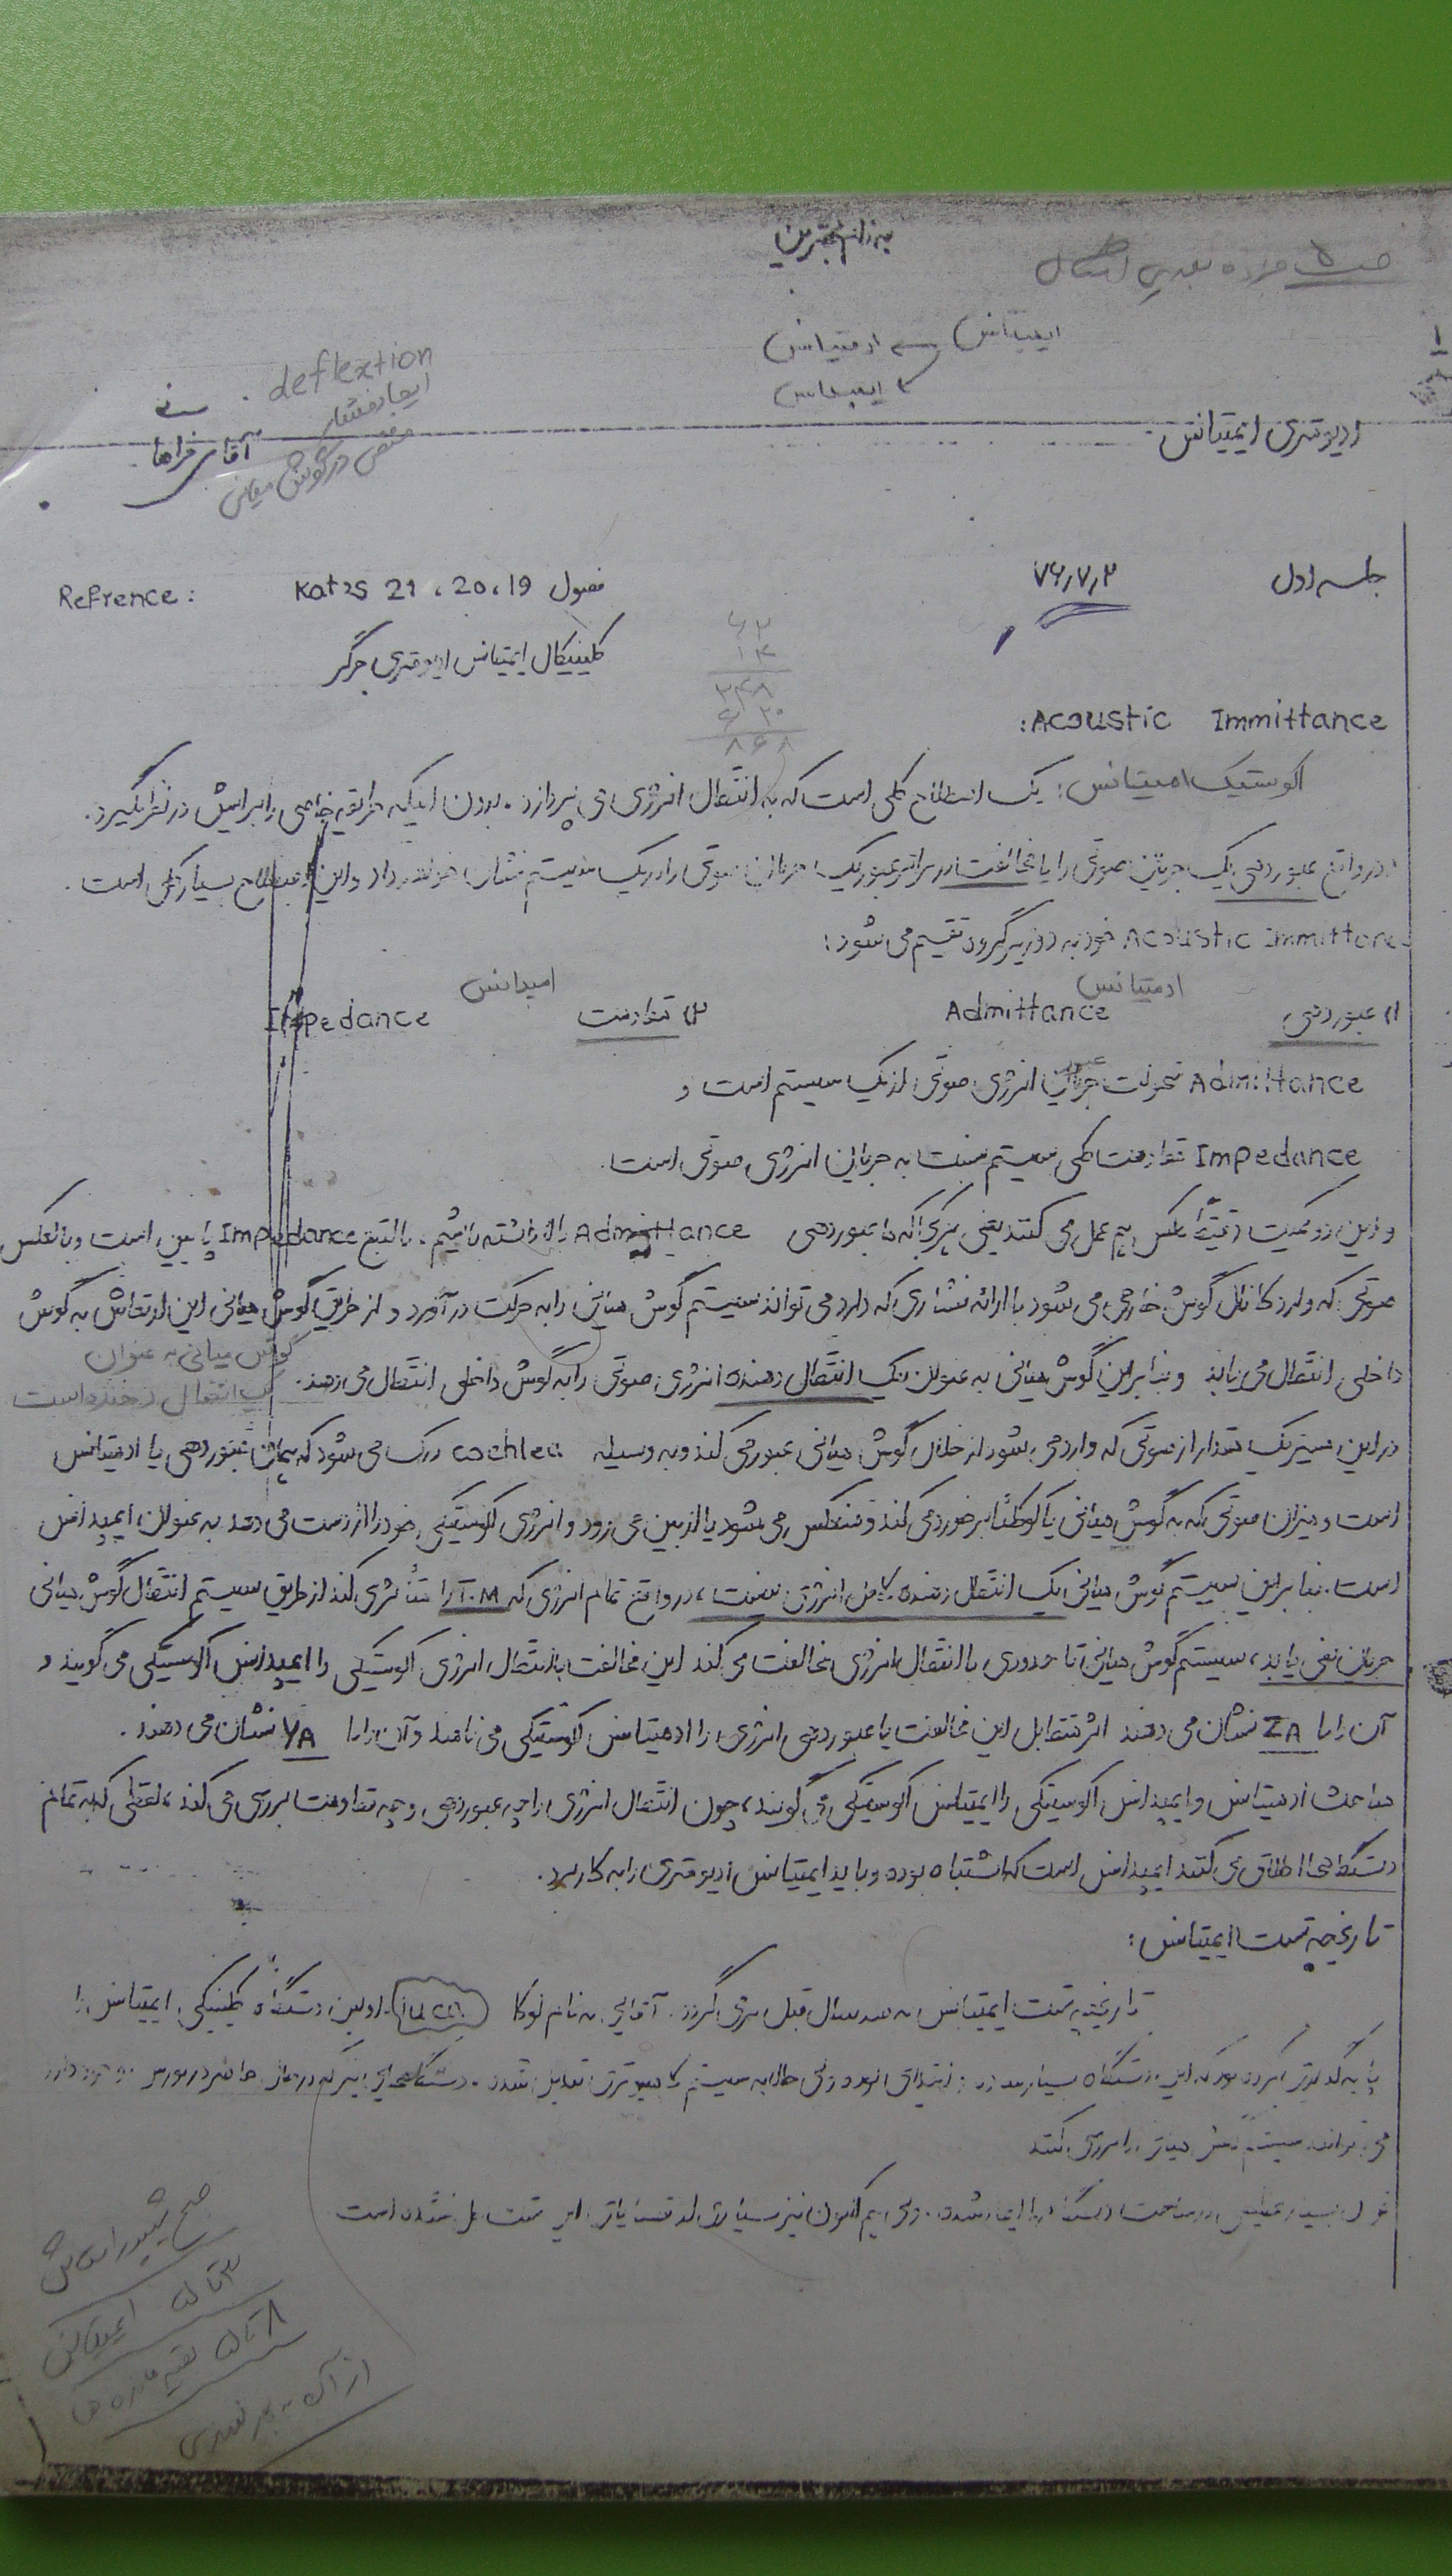 ایمیتانس ادمیتانس
ایمپدانس
deflextion
ایجاد فشار
منفی در گوش میانی
آقای فراها
ادیومتری ایمیتانس
جلسه اول ۷۶٫۷٫۲
Refrence: Kat2s 21، 20، 19 فصول
کلینیکال ایمیتانس ادیومتری جرگر
۶۲
۱۴
۲۴۸
۶۲۰
۸۶۸
Acoustic Immittance:
اکوستیک امیتانس: یک اصطلاح کلی است که به انتقال انرژی می پردازد. بدون اینکه طریقه خاصی را برایش در نظر بگیرد.
در واقع عبوردهی یک جریان صوتی را یا مخالفت در برابر عبور یک جریان صوتی را در یک سیستم نشان خواهد داد و این اصطلاح بسیار کلی است.
Acoustic Immittance خود به دو زیر گروه تقسیم می شود:
۱) عبوردهی Admittance ادمیتانس ۲) مقاومت Impedance امپدانس
Admittance سهولت جریان عبور انرژی صوتی از یک سیستم است و
Impedance مقاومت کلی سیستم نسبت به جریان انرژی صوتی است.
و این دو کمیت دقیقاً عکس هم عمل می کنند یعنی هر کجا که ما عبوردهی Admittance بالا داشته باشیم. بالتبع Impedance پایین است و بالعکس
صوتی که وارد کانال گوش خارجی می شود با ارائه فشاری که دارد می تواند سیستم گوش میانی را به حرکت در آورد و از طریق گوش میانی این ارتعاش به گوش
داخلی انتقال می یابد و بنابراین گوش میانی به عنوان یک انتقال دهنده انرژی صوتی را به گوش داخلی انتقال می دهد.
گوش میانی به عنوان
یک انتقال دهنده است
در این مسیر یک مقدار از صوتی که وارد می شود از خلال گوش میانی عبور می کند و به وسیله cochlea درک می شود که همان عبوردهی یا ادمیتانس
است و میزان صوتی که به گوش میانی یا کوکلئا برخورد می کند و منعکس می شود یا از بین می رود و انرژی اکوستیکی خود را از دست می دهد به عنوان ایمپدانس
است. بنابراین سیستم گوش میانی یک انتقال دهنده کامل انرژی نیست، در واقع تمام انرژی که T.M را متأثر می کند از طریق سیستم انتقال گوش میانی
جریان نمی یابد، سیستم گوش میانی تا حدودی با انتقال انرژی مخالفت می کند این مخالفت با انتقال انرژی اکوستیکی را ایمپدانس اکوستیکی می گویند و
آن را با ZA نشان می دهند اثر متقابل این مخالفت یا عبوردهی انرژی را ادمیتانس اکوستیکی می نامند و آن را با YA نشان می دهند.
مباحث ادمیتانس و ایمپدانس اکوستیکی را ایمیتانس اکوستیکی می گویند، چون انتقال انرژی را چه عبوردهی و چه مقاومت بررسی می کند، لفظی که به تمام
دستگاهها اطلاق می کنند ایمپدانس است که اشتباه بوده و باید ایمیتانس ادیومتری را به کار برد.
تاریخچه تست ایمیتانس:
تاریخچه تست ایمیتانس به صد سال قبل برمی گردد. آقایی به نام لوکا luca اولین دستگاه کلینیکی ایمیتانس را
پایه گذاری کرده بود که این دستگاه بسیار ابتدائی بود ولی حالا به سیستم کامپیوتری تبدیل شده. دستگاههای دیگر که در حال حاضر در بورس وجود دارد
می تواند سیستم گوش میانی را بررسی کنند
تحول بسیار عظیمی در ساخت دستگاهها ایجاد شده. ولی هم اکنون نیز بسیاری از قضایای این تست حل نشده است
۳ تا ۵
۸ تا ۵